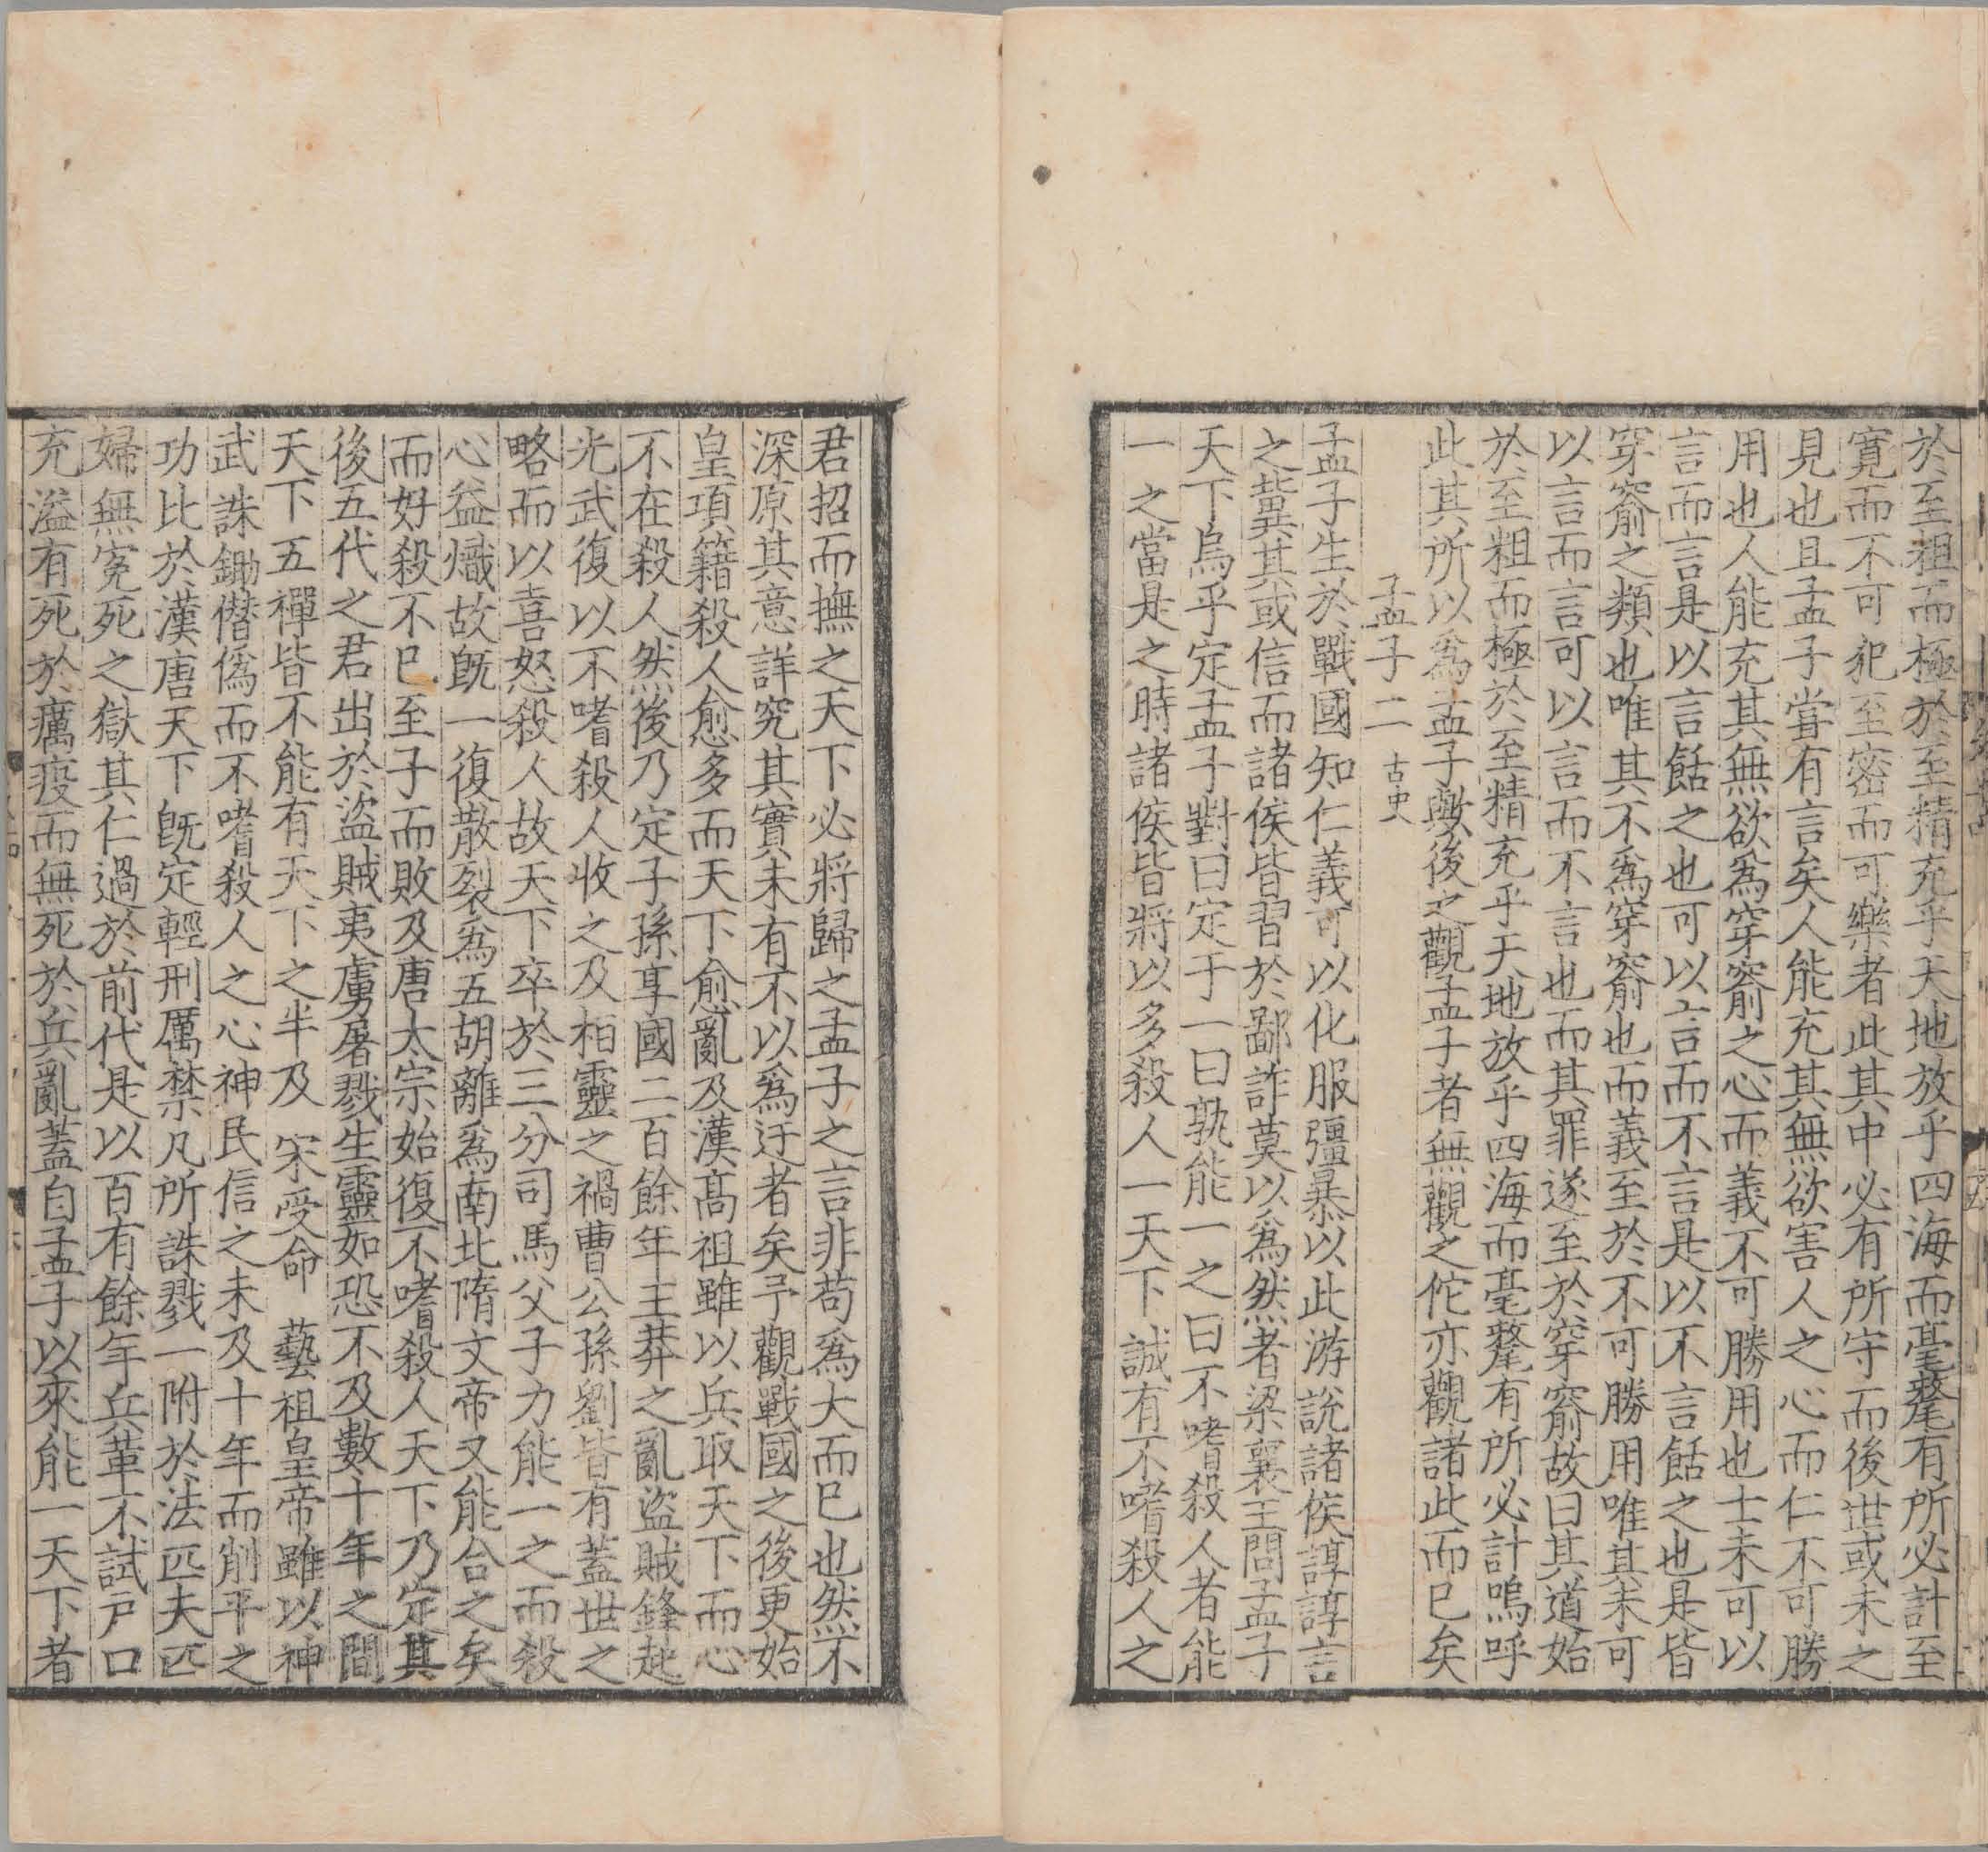 於至粗而極於至精充乎天地放乎四海而毫釐有所必計至
寬而不可犯至密而可樂者此其中必有所守而後世或未之
見也且孟子嘗有言矣人能充其無欲害人之心而仁不可勝
用也人能充其無欲爲穿窬之心而義不可勝用也士未可以
言而言是以言餂之也可以言而不言是以不言餂之也是皆
穿窬之類也唯其不爲穿窬也而義至於不可勝用唯其未可
以言而言可以言而不言也而其罪遂至於穿窬故曰其道始
於至粗而極於至精充乎天地放乎四海而毫釐有所必計嗚呼
此其所以爲孟子歟後之觀孟子者無觀之佗亦觀諸此而已矣
孟子二 古史
孟子生於戰國知仁義可以化服彊暴以此游說諸侯諄諄言
之冀其或信而諸侯皆習於鄙詐莫以爲然者梁襄王問孟子
天下烏乎定孟子對曰定于一曰孰能一之曰不嗜殺人者能
一之當是之時諸侯皆將以多殺人一天下誠有不嗜殺人之
君招而撫之天下必將歸之孟子之言非苟爲大而已也然不
深原其意詳究其實未有不以爲迂者矣予觀戰國之後更始
皇項籍殺人愈多而天下愈亂及漢高祖雖以兵取天下而心
不在殺人然後乃定子孫享國二百餘年王莽之亂盜賊鋒起
光武復以不嗜殺人收之及栢靈之禍曹公孫劉皆有蓋世之
略而以喜怒殺人故天下卒於三分司馬父子力能一之而殺
心益熾故旣一復散裂爲五胡離爲南北隋文帝又能合之矣
而好殺不已至子而敗及唐太宗始復不嗜殺人天下乃定其
後五代之君出於盜賊夷虜屠戮生靈如恐不及數十年之間
天下五禪皆不能有天下之半及 宋受命 藝祖皇帝雖以神
武誅鋤僭僞而不嗜殺人之心神民信之未及十年而削平之
功比於漢唐天下旣定輕刑厲禁凡所誅戮一附於法匹夫匹
婦無寃死之獄其仁過於前代是以百有餘年兵革不試戸口
充溢有死於癘疫而無死於兵亂蓋自孟子以來能一天下者